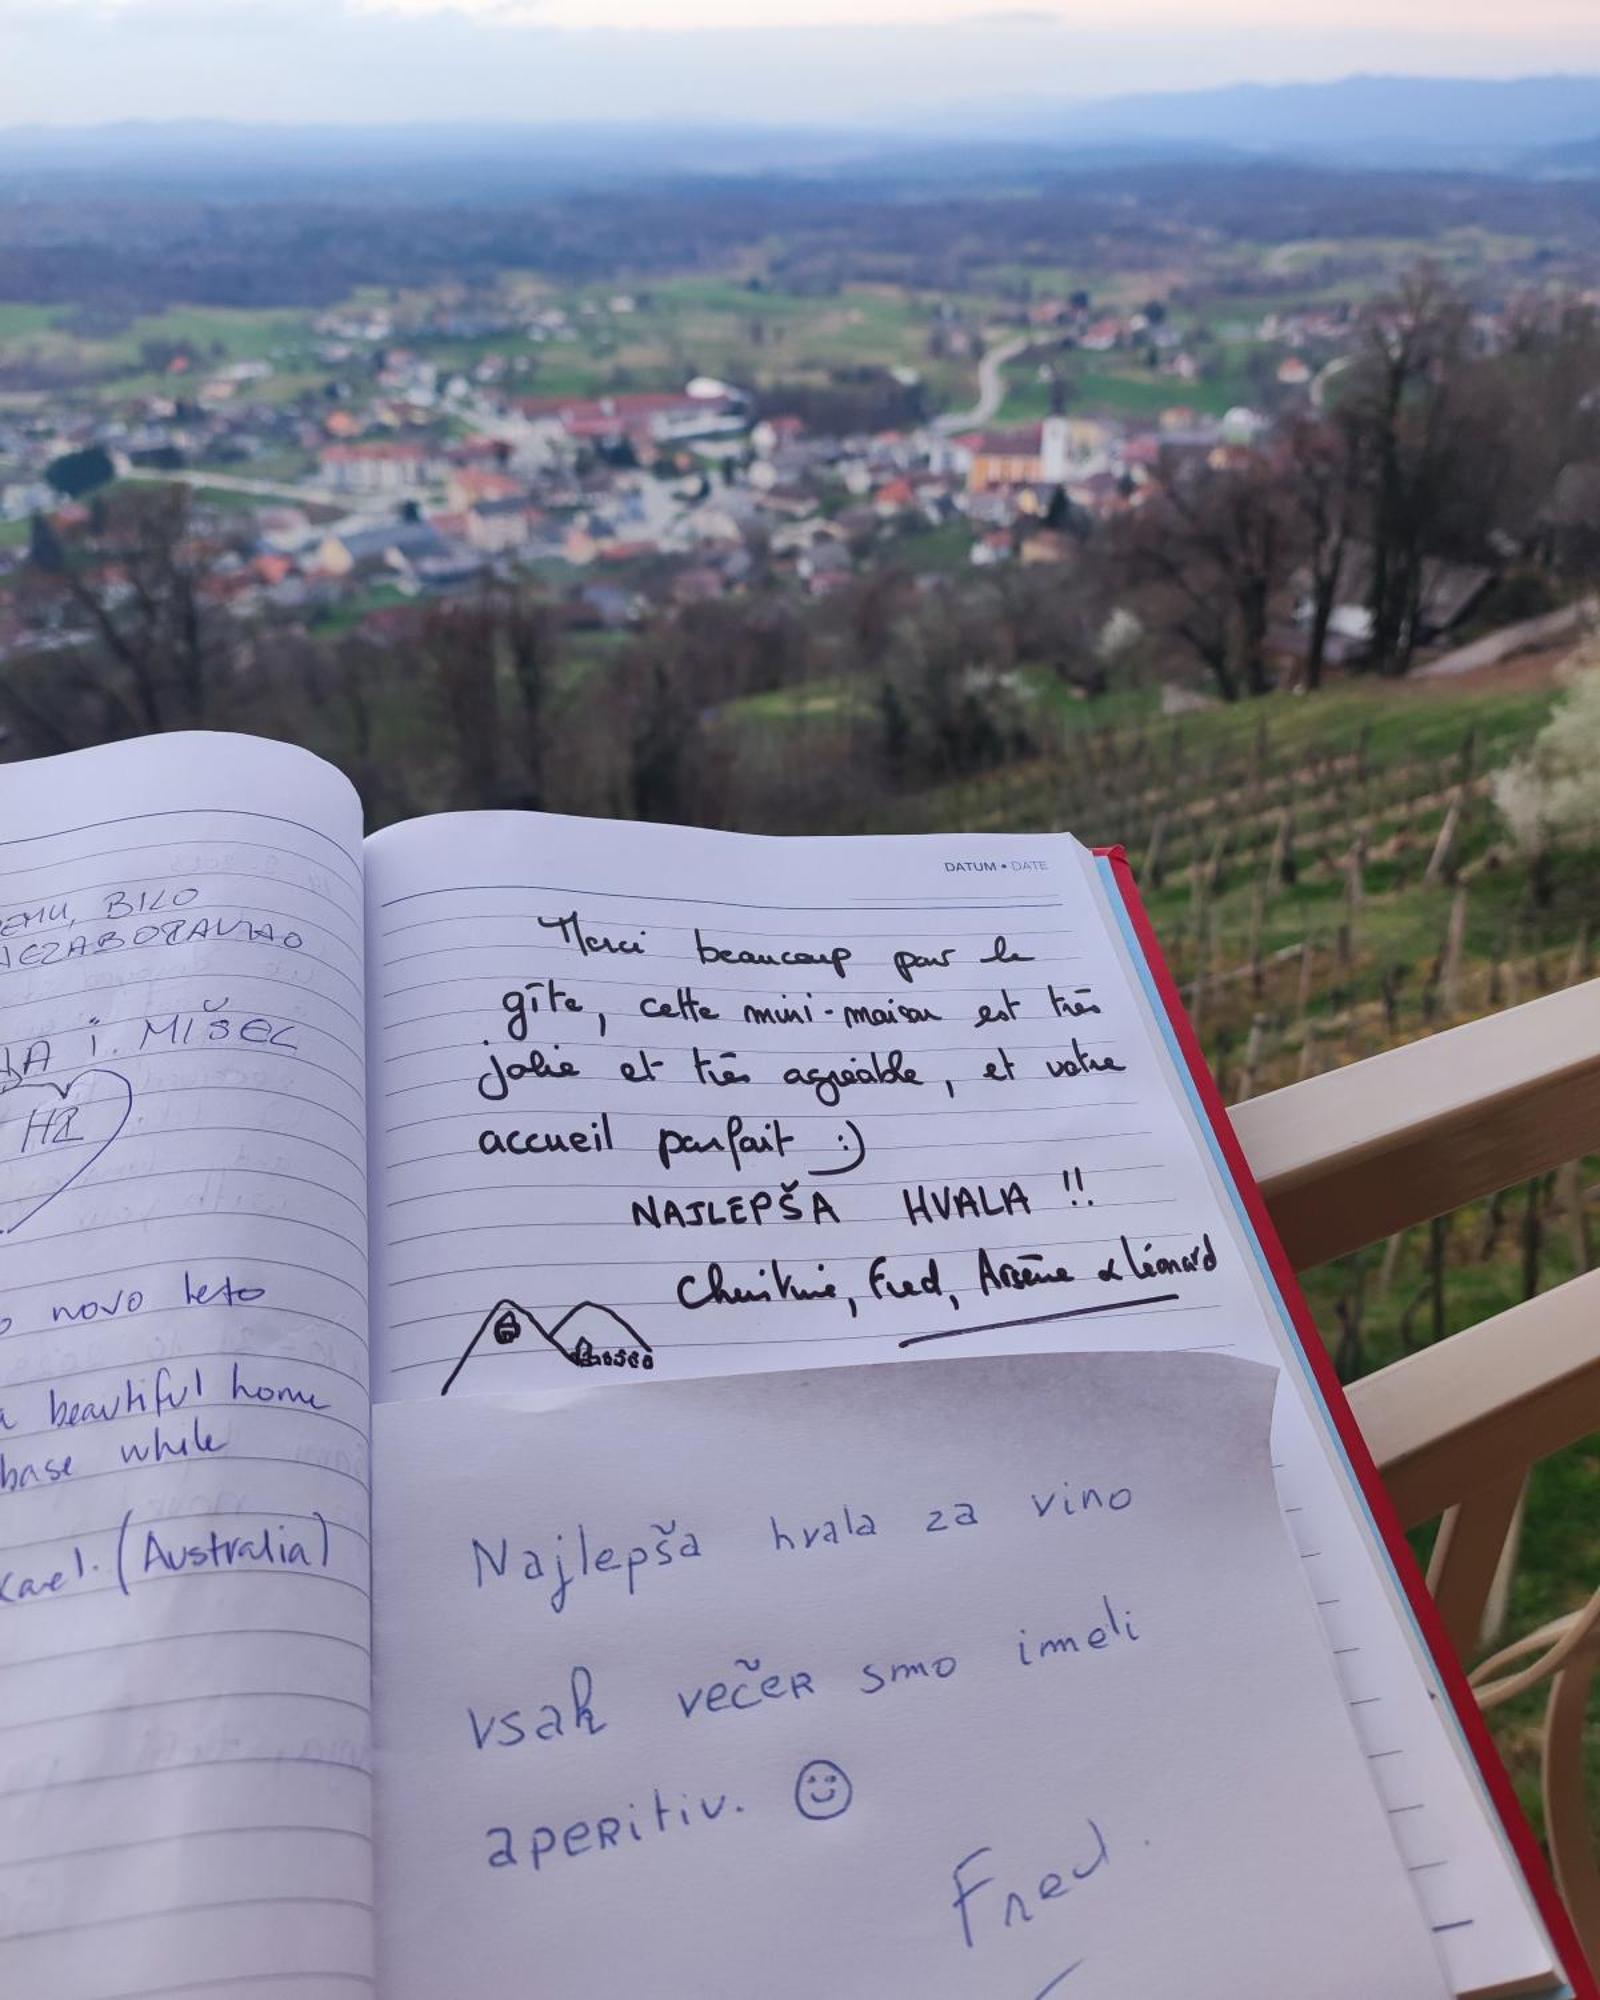 EMU, BILO
NEZABORAVNO
JA i. MIŠEL
HR
novo leto
a beautiful home
base while
Karel. (Australia)
DATUM • DATE
Merci beaucoup pour le
gîte, cette mini-maison est très
jolie et très agréable, et votre
accueil parfait :)
NAJLEPŠA HVALA !!
Christine, Fred, Arsène & Léonard
Najlepša hvala za vino
vsak večer smo imeli
aperitiv. ☺
Fred.